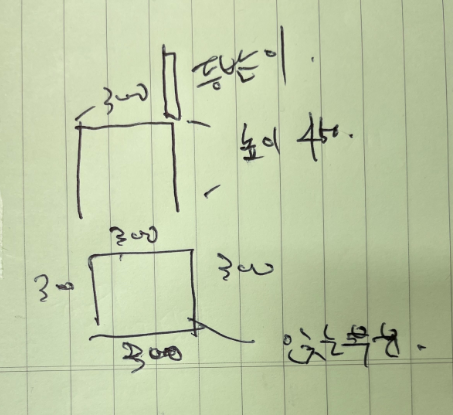 등받이.
300
높이 450.
300
300
300
300